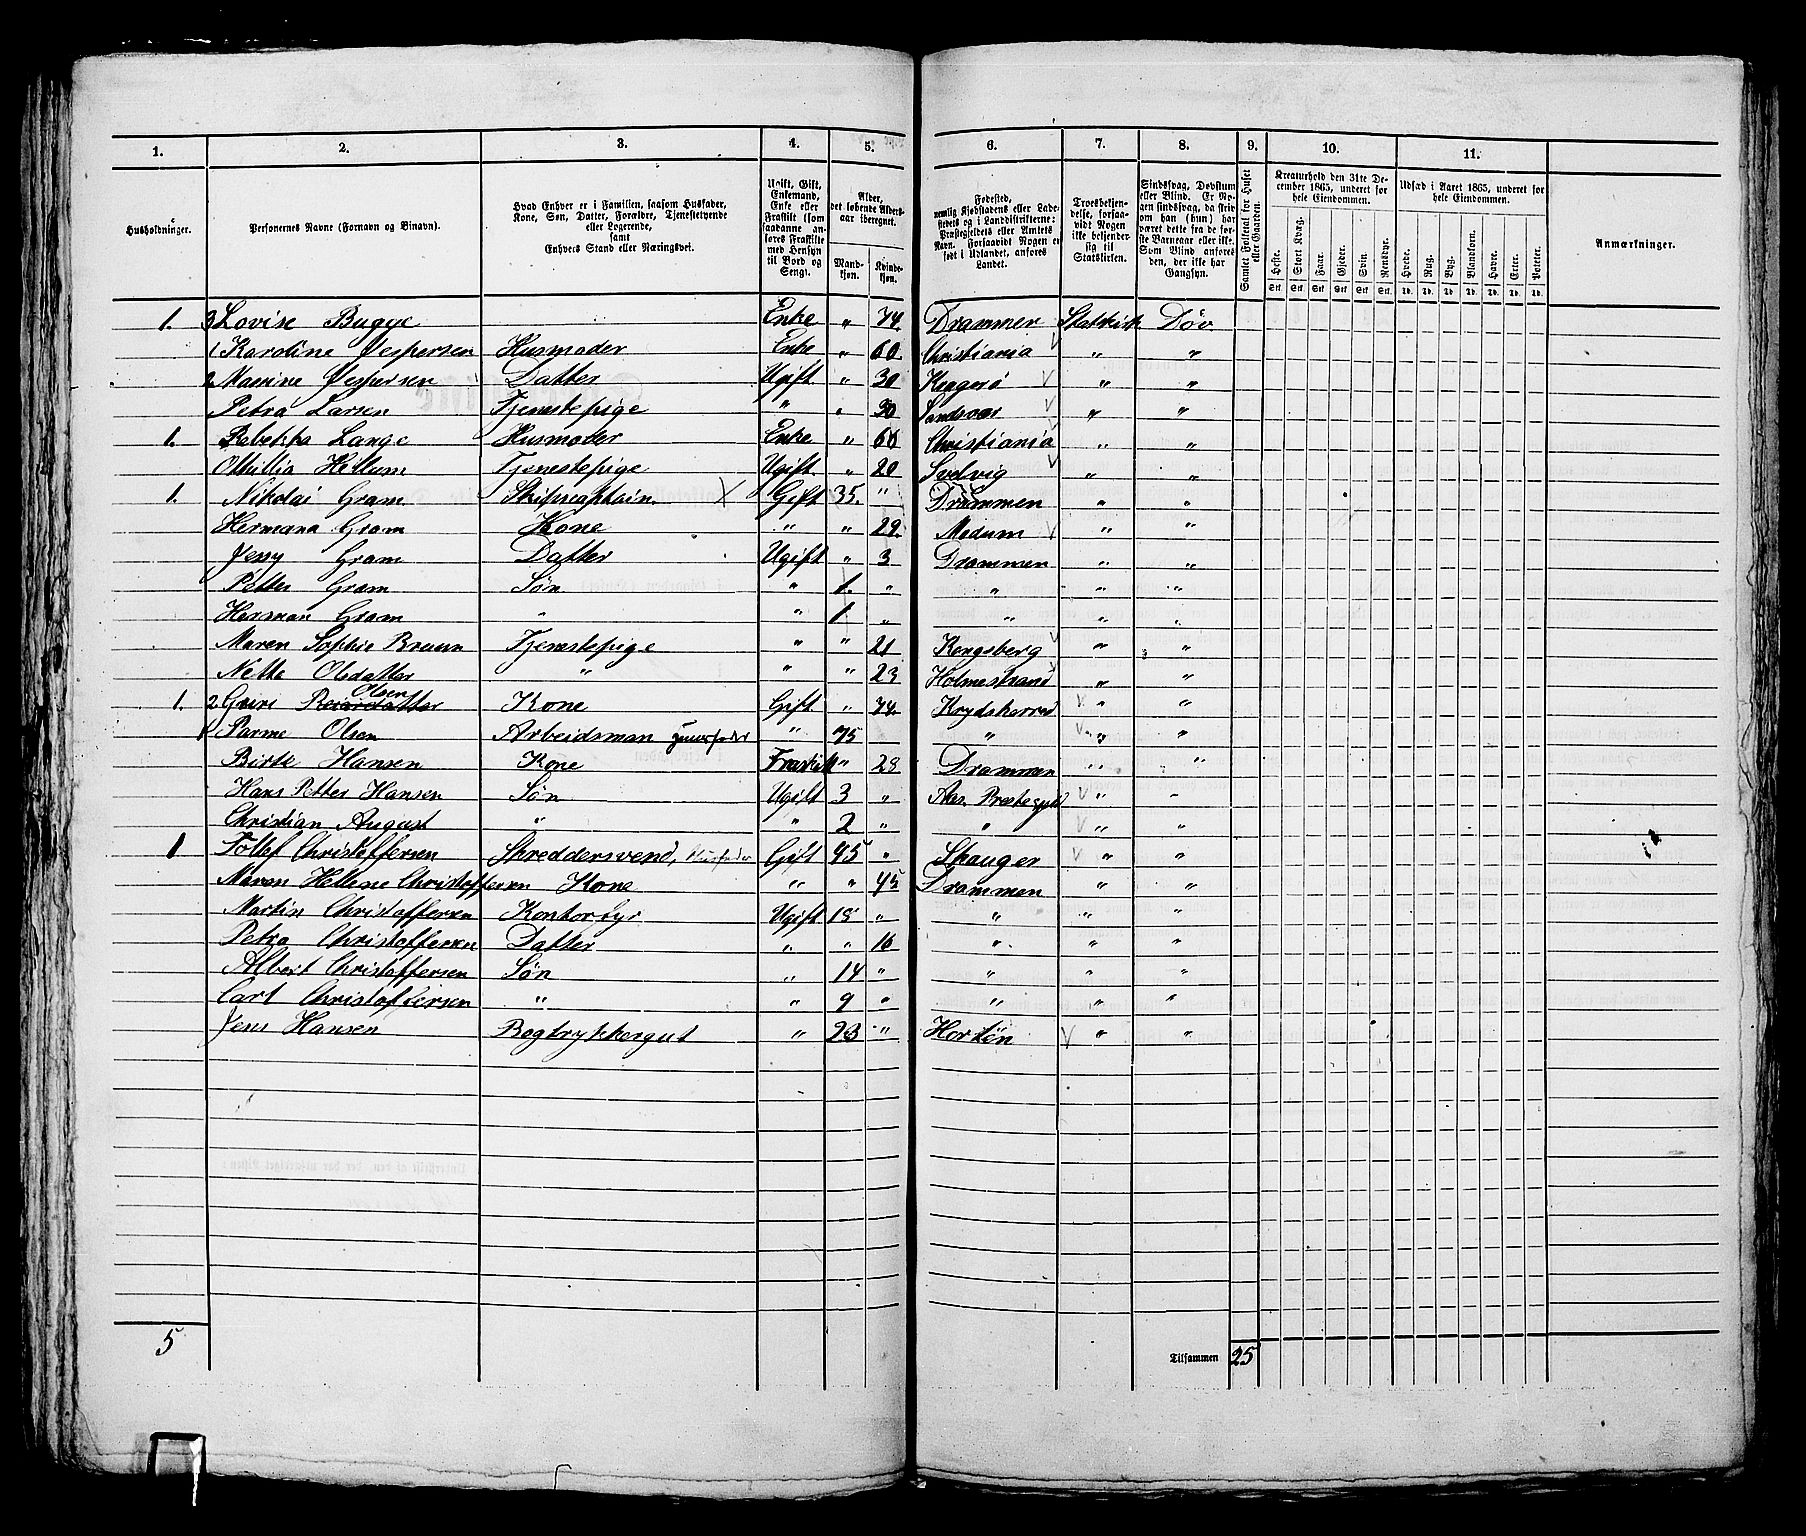 1. 2. 3. 4. 5. 6. 7. 8. 9. 10. 11.
Husholdninger.
Personernes Navne (Fornavn og Binavn).
Hvad Enhver er i Familien, saasom Husfader, Kone, Søn, Datter, Forældre, Tjenestetyende eller Logerende, samt Enhvers Stand eller Næringsvei.
Ugift, Gift, Enkemand, Enke eller Fraskilt (som saadanne anføres Fraskilte med Hensyn til Bord og Seng).
Alder, det løbende Aldersaar iberegnet.
Mandkjøn. Kvindekjøn.
Fødested, nemlig Kjøbstadens eller Ladestedets og i Landdistrikterne: Præstegjeldets eller Amtets Navn. Forsaavidt Nogen er født i Udlandet, anføres Landet.
Troesbekjendelse, forsaavidt Nogen ikke bekjender sig til Statskirken.
Sindssvag, Døvstum eller Blind. Er Nogen sindssvag, da skrives om han (hun) har været dette fra de første Barneaar eller ikke. Som Blind ansøres den, der ikke har Gangsyn.
Samlet Folketal for Huset eller Gaarden.
Kreaturhold den 31te December 1865, underet for hele Eiendommen.
Heste. Stort Kvæg. Faar. Gjeder. Svin. Rensdyr.
Udsæd i Aaret 1865, underet for hele Eiendommen.
Hvede. Rug. Byg. Blandkorn. Havre. Erter. Poteter.
Stk. Stk. Stk. Stk. Stk. Stk. Td. Td. Td. Td. Td. Td. Td.
Anmærkninger.
1. 3 Lovise Bugge Enke " 74 Drammen Statskirk Døv
1 Karoline Jespersen Husmoder Enke " 60 Christiania " "
2 Maerine Jespersen Datter Ugift " 30 Kragerö " "
Petra Larsen Tjenestepige " " 30 Sandsvær " "
1. Rebekka Lange Husmoder Enke " 66 Christiania " "
Othillia Hellum Tjenestepige Ugift " 20 Svelvig " "
1. Nikolai Gram Skibscaptain. X Gift 35. " Drammen " "
Hermana Gram Kone " " 29. Modum " "
Jensy Gram Datter Ugift " 3 Drammen " "
Petter Gram Søn " 1. " " " "
Herman Gram " " 1 " " " "
Maren Sophie Bruun Tjenestepige " " 21 Kongsberg " "
Nette Olsdatter " " " 23 Holmestrand " "
1. 2 Guri Reiarsdatter Olsen Kone Gift " 74. Krydsherred " "
1 Parme Olsen Arbeidsman " 75 " " "
Birte Hansen Kone Fraskilt " 28 Drammen " "
Hans Petter Hansen Søn Ugift 3 " Aas Prestegjeld " "
Christian August " " 2 " " " "
1 Tollef Christoffersen Skreddersvend, Husfader Gift 45 " Stavanger " "
Maren Hellene Christoffersen Kone " " 45 Drammen " "
Martin Christoffersen Kontorbyr Ugift 18 " " " "
Petra Christoffersen Datter " " 16 " " "
Albert Christoffersen Søn " 14 " " " "
Carl Christoffersen " " 9 " " " "
Jens Hansen Bogtrykkergut " 23 " Horten " "
5 Tilsammen 25